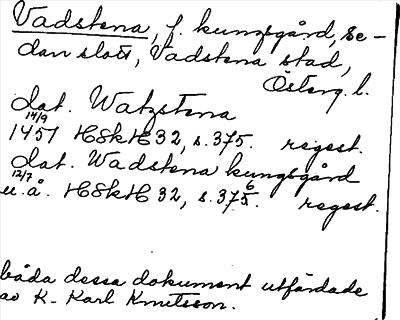 Vadstena, f. kungsgård, se-
dan slott, Vadstena stad,
Österg. l.
dat. Watzstena
14/9
1451 HSkH 32, s. 375. regest.
dat. Wadstena kungsgård
12/7
u.å. HSkH 32, s. 375. regest.
6
båda dessa dokument utfärdade
av K. Karl Knutsson.